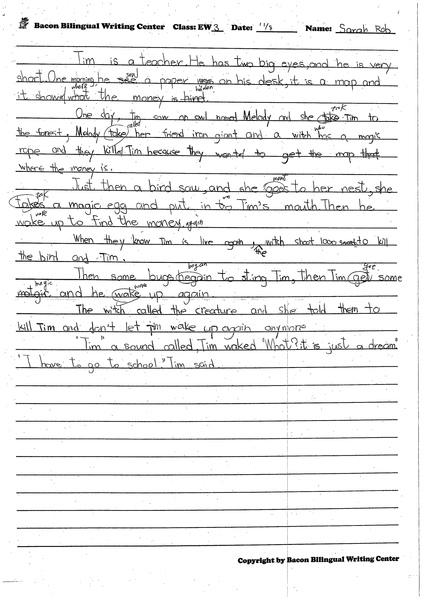 Bacon Bilingual Writing Center Class: EW 3 Date: 11/8 Name: Sarah Roh
Tim is a teacher. He has two big eyes, and he is very
short. One morning he see saw a paper on his desk, it is a map and
it showed what the money is hidden
One day, Tim saw an owl named Melody and she take took Tim to
the forest, Melody take called her friend iron giant and a witch who has a magic
rope and they killed Tim because they wanted to get the map that
where the money is.
Just then a bird saw, and she goes went to her nest, she
takes took a magic egg and put in to Tim's mouth. Then he
wake woke up to find the money again
When they know Tim is live again witch shoot to kill
the bird and Tim.
Then some bugs began to sting Tim, then Tim get some
magic and he wake woke up again.
The witch called the creature and she told them to
kill Tim and don't let Tim wake up again anymore
"Tim" a sound called, Tim waked "What? it is just a dream"
"I have to go to school." Tim said.
Copyright by Bacon Bilingual Writing Center